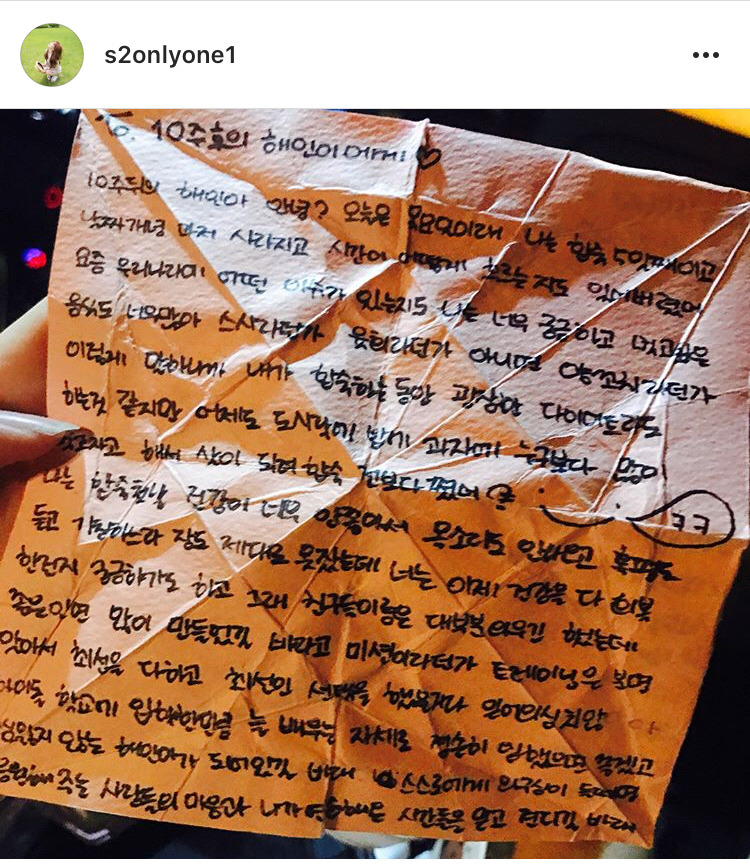 s2onlyone1
To. 10주후의 해인이에게♡
10주뒤의 해인아 안녕? 오늘은 목요일이래 나는 합숙 5일째이고
날짜개념 먼저 사라지고 시간이 어떻게 흐르는지도 잊어버렸어
요즘 우리나라에 어떤 이슈가 있는지도 나는 너무 궁금하고 먹고싶은
음식도 너무많아 스시라던가 육회라던가 아니면 양꼬치라던가
이렇게 말하니까 내가 합숙하는동안 굉장한 다이어트라도
하는것 같지만 어제도 도시락에 밥에 과자에 누구보다 많이
해서 살이 되려 합숙 전보다 쪘어
ㅋㅋ
나는 합숙첫날 건강이 너무 안좋아서 목소리도 안나오고
듣고 기침하느라 잠도 제대로 못잤는데 너는 이제 건강을 다 회복
한건지 궁금하기도 하고 그래 친구들이름은 대부분 외우긴 했는데
좋은인연 많이 만들었길 바라고 미션이라던가 트레이닝은 보며
있어서 최선을 다하고 최선인 선택을 했을거라 믿어의심치않아
아이돌 학교에 입학한만큼 늘 배우는 자세로 겸손히 임했으면 좋겠고
않는 해인이가 되어있길 바래 스스로에게 의구심이 들때면
응원해 주는 사람들의 마음과 시간들을 믿고 견디길 바래